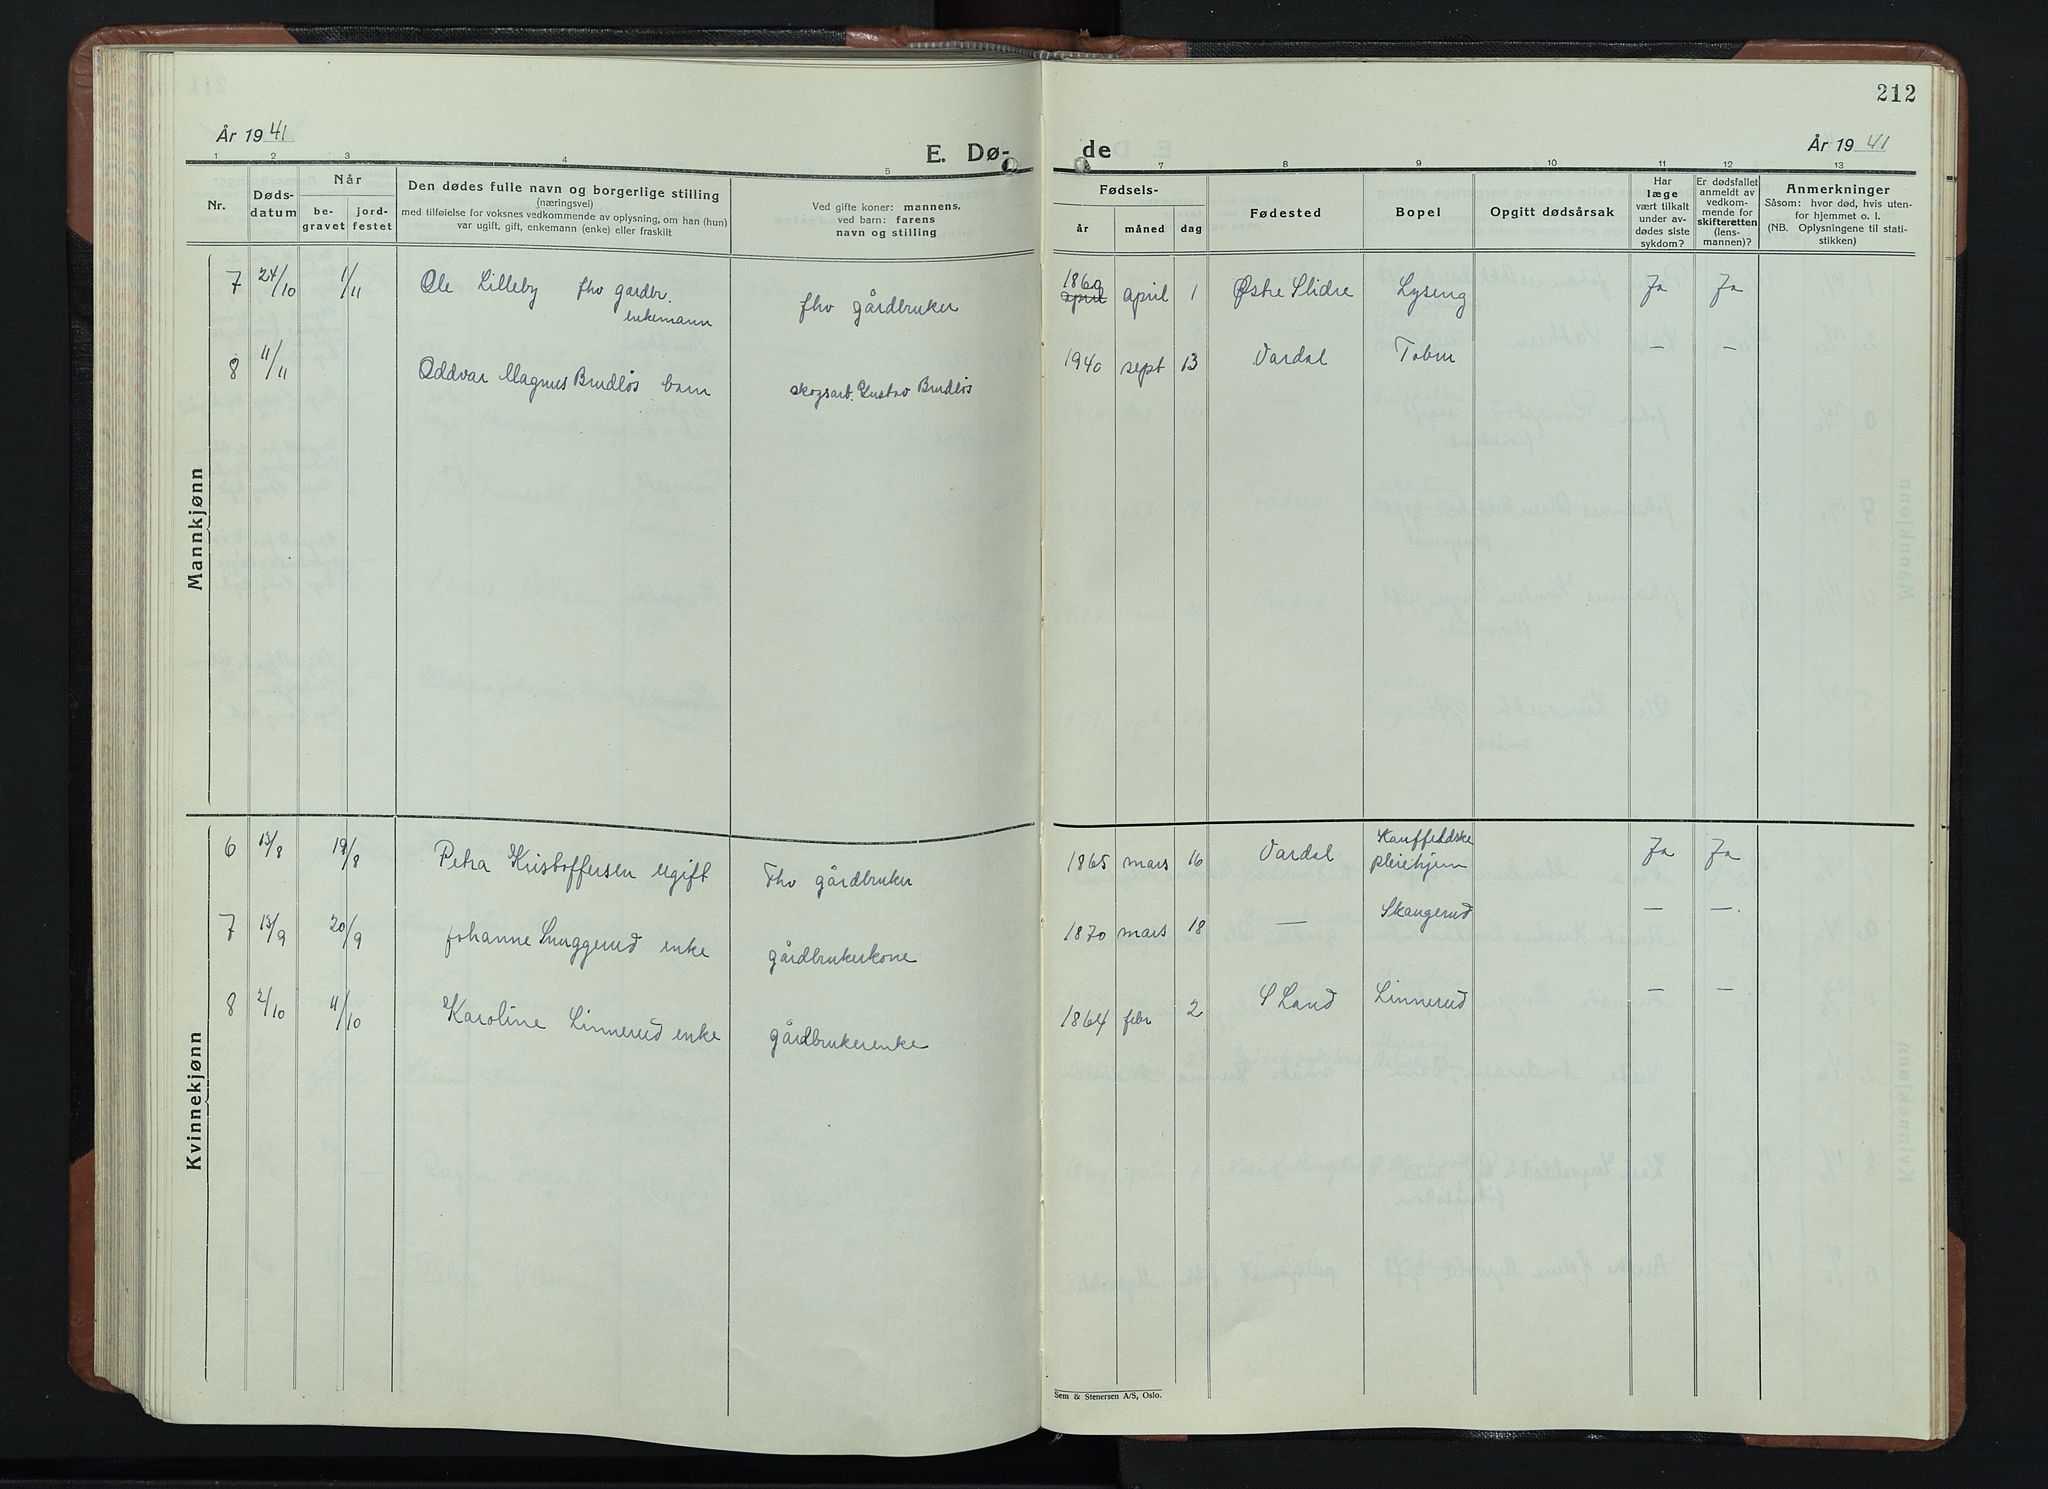 212
År 1941
E. Dø-
de
År 1941
1 2 3 4 5 7 8 9 10 11 12 13
Nr.
Døds-
datum
Når
be-
gravet
jord-
festet
Den dødes fulle navn og borgerlige stilling
(næringsvei)
med tilføielse for voksnes vedkommende av oplysning, om han (hun)
var ugift, gift, enkemann (enke) eller fraskilt
Ved gifte koner: mannens,
ved barn: farens
navn og stilling
Fødsels-
år måned dag
Fødested
Bopel
Opgitt dødsårsak
Har
læge
vært tilkalt
under av-
dødes siste
sykdom?
Er dødsfallet
anmeldt av
vedkom-
mende for
skifteretten
(lens-
mannen)?
Anmerkninger
Såsom: hvor død, hvis uten-
for hjemmet o. l.
(NB. Oplysningene til stati-
stikken)
Mannkjønn
7 24/10 1/11 Ole Lilleby fhv gardbr.
enkemann
fhv gårdbruker
1860
april april 1 Østre Slidre Lyseng Ja Ja
8 11/11 Oddvar Magnus Brudløs barn skogsarb. Gustav Brudløs
1940 sept 13 Vardal — —
Kvinnekjønn
6 13/8 19/8 Petra Kristoffersen ugift Fhv gårdbruker
1865 mars 16 Vardal Kauffeldske
pleiehjem Ja Ja
7 13/9 20/9 Johanne Snuggerud enke gårdbrukerkone
1870 mars 18 — Skaugerud — —
8 2/10 11/10 Karoline Linnerud enke gårdbrukerenke
1864 febr 2 S Land Linnerud — —
Sem & Stenersen A/S, Oslo.